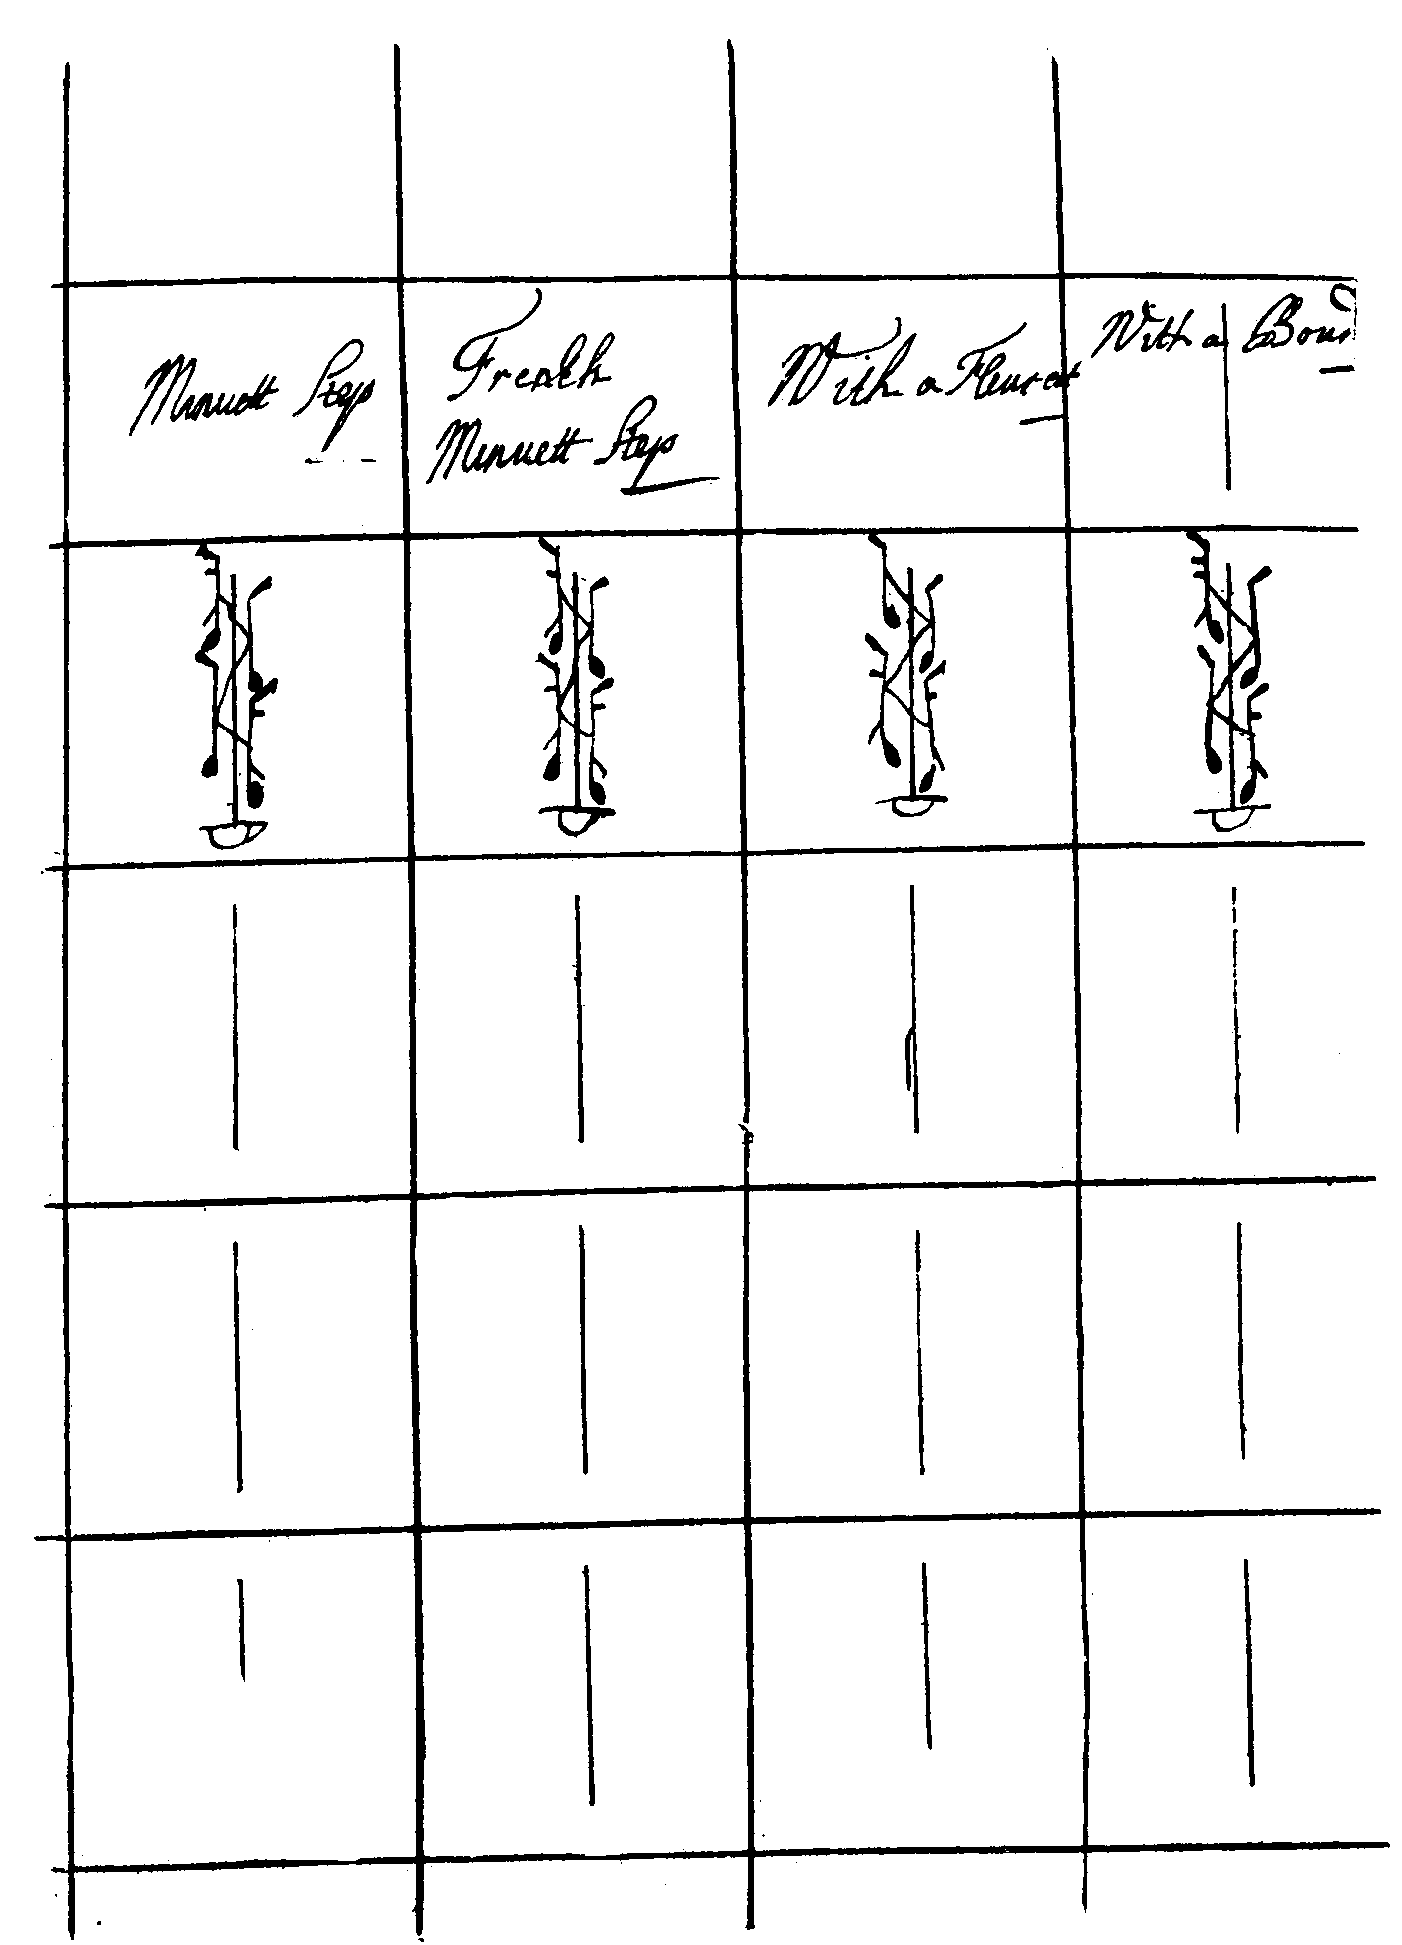 Minuett Step
French
Minuett Step
With a Fleuret
With a